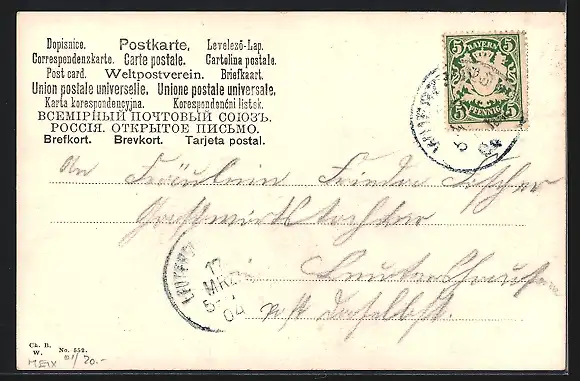 Dopisnice. Postkarte, Levelező-Lap.
Correspondenzkarte. Carte postale. Cartolina postale.
Post card. Weltpostverein. Briefkaart.
Union postale universelle. Unione postale universale,
Karta korespondencyjna. Korespondenční listek.
ВСЕМІРНЫЙ ПОЧТОВЫЙ СОЮЗЪ.
РОССІЯ. ОТКРЫТОЕ ПИСЬМО.
Brefkort. Brevkort. Tarjeta postal.
5 BAYERN 5
5 PFENNIG 5
An Fräulein Frieda Fischer
Gastwirtstochter
in Leutershausen
post daselbst.
17
MRZ
04
Ch. B.
W. No. 552.
20.-